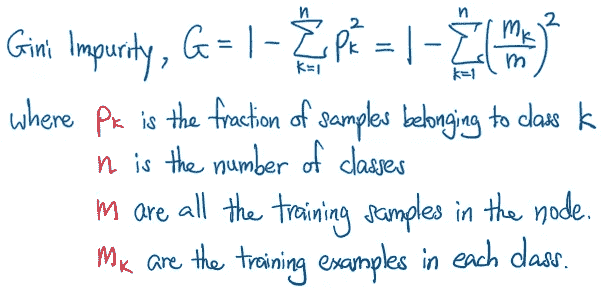 Gini Impurity, G = 1 - \sum_{k=1}^{n} p_k^2 = 1 - \sum_{k=1}^{n} \left( \frac{m_k}{m} \right)^2
where p_k is the fraction of samples belonging to class k
n is the number of classes
m are all the training samples in the node.
m_k are the training examples in each class.